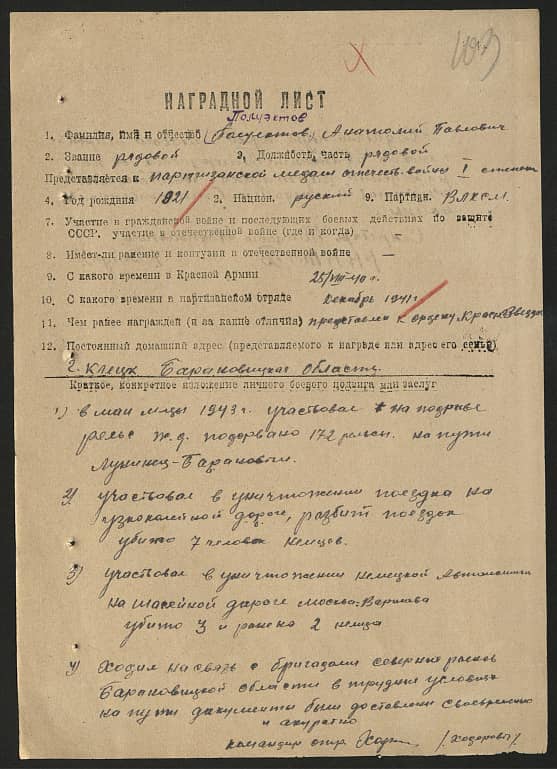 103
НАГРАДНОЙ ЛИСТ
Полуэктов
1. Фамилия, имя и отчество Анатолий Павлович
2. Звание рядовой 3. Должность, часть рядовой
Представляется к партизанской медали отечеств. войны I степени
4. Год рождния 1921 2. Национ. руский 9. Партийн. ВЛКСМ
7. Участие в гражданской войне и последующих боевых действиях по защите
СССР. участие в отечественной войне (где и когда) –
8. Имеет-ли ранение и контузия в отечественной войне –
9. С какого времени в Красной Армии 25/VIII-40 г.
10. С какого времени в партизанском отряде декабрь 1941 г.
11. Чем ранее награждей (и за какие отличия) представлен к ордену Красн. Звезды
12. Постоянный домашний адрес (представляемого к награде или адрес его семьи)
г. Клецк Барановицкая область.
Краткое, конкретное изложение личного боевого подвига или заслуг
1) в мае м-цы 1943 г. участвовал на подрыве
рельс ж.д. подорвано 172 рельсы. на пути
Лунинец-Барановичи.
2) участвовал в уничтожении поездка на
узкоколейной дороге, разбит поездок
убито 7 человек немцев.
3) участвовал в уничтожении немецкой Автомашины
на шасейной дароге Москва-Варшава
убито 3 и ранено 2 немца
4) Ходил на связь с бригадами северных
Барановицкой области в трудных условиях
на пути дакументы были доставлены своевременно
и акуратно
командир отр. /Ходоровы/